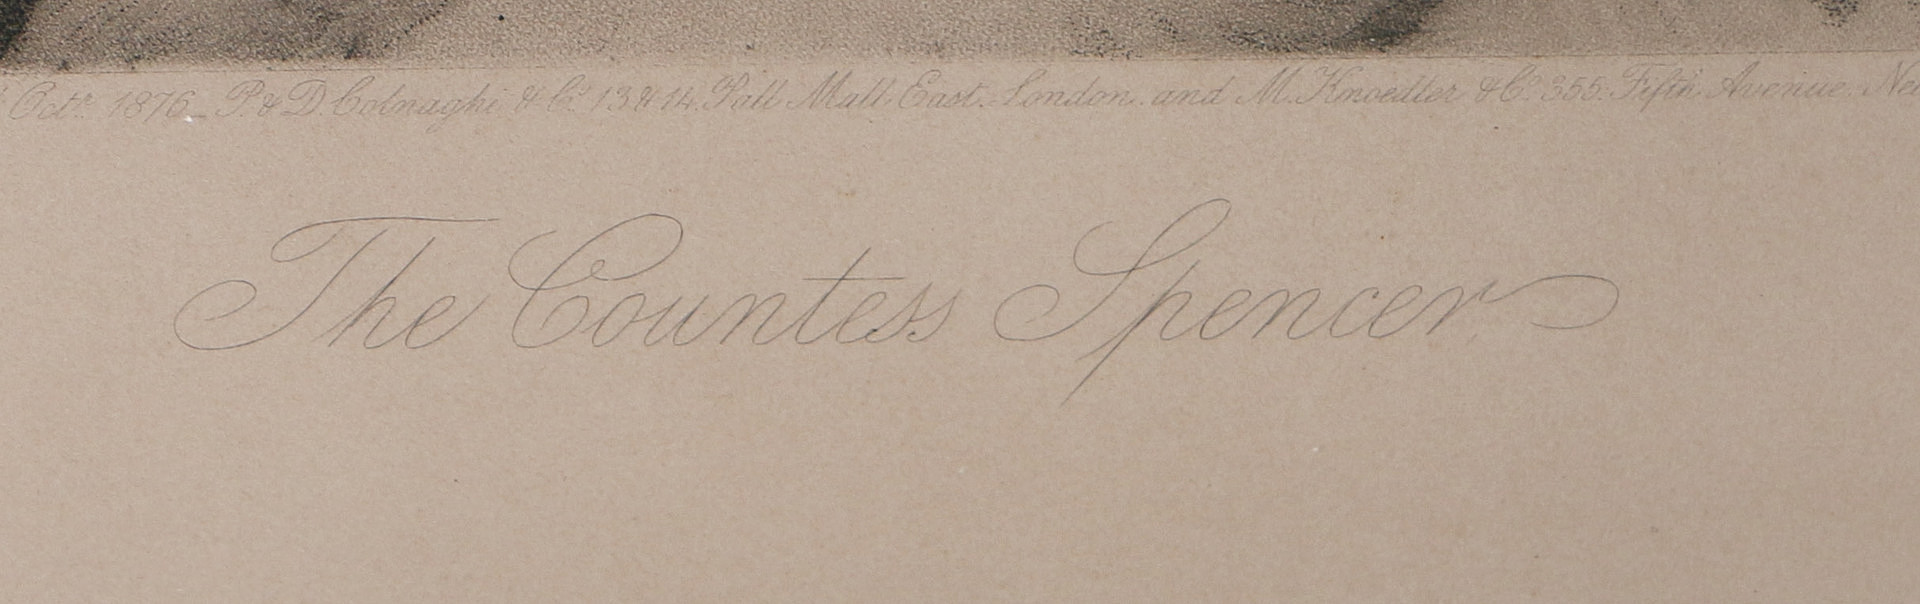 Octr. 1876_ P. & D. Colnaghi & Co. 13 & 14. Pall Mall East. London. and M. Knoedler & Co. 355. Fifth Avenue.
The Countess Spencer